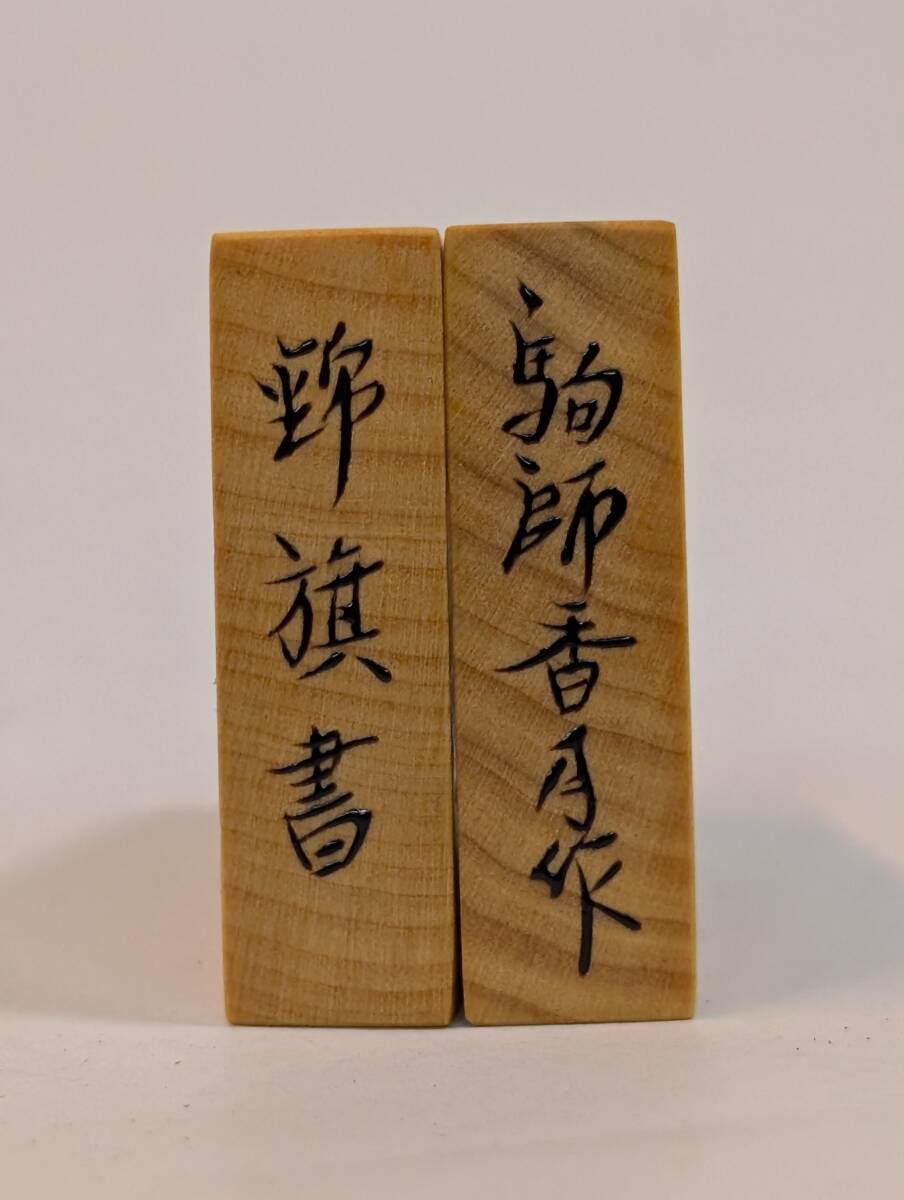 駒師香月作
錦旗書